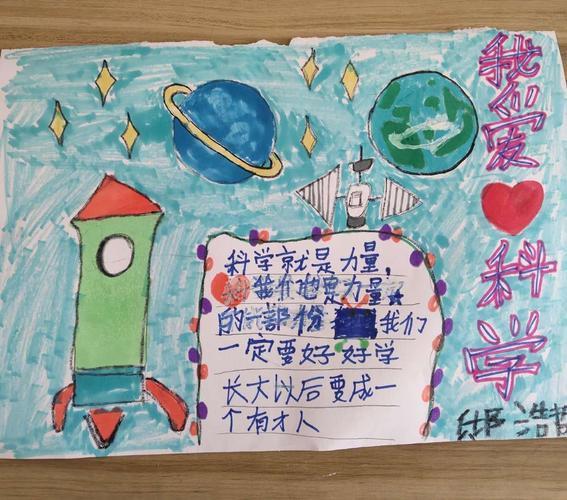 我们爱科学
科学就是力量，
我们也是力量
的一部份我们
一定要好好学
长大以后要成一
个有才人
浩